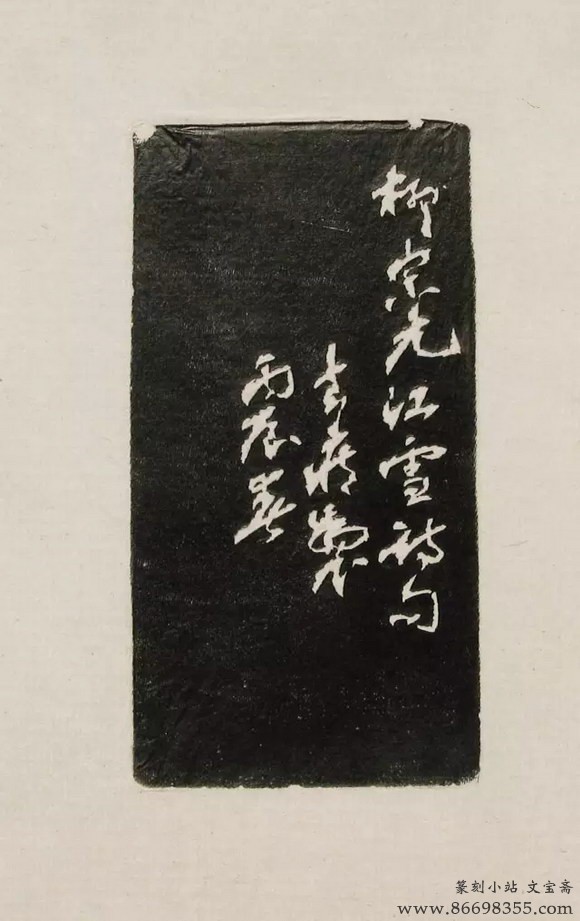 柳宗元江雪詩句
去疾製
丙辰春
篆刻小站 文宝斋
www.86698355.com